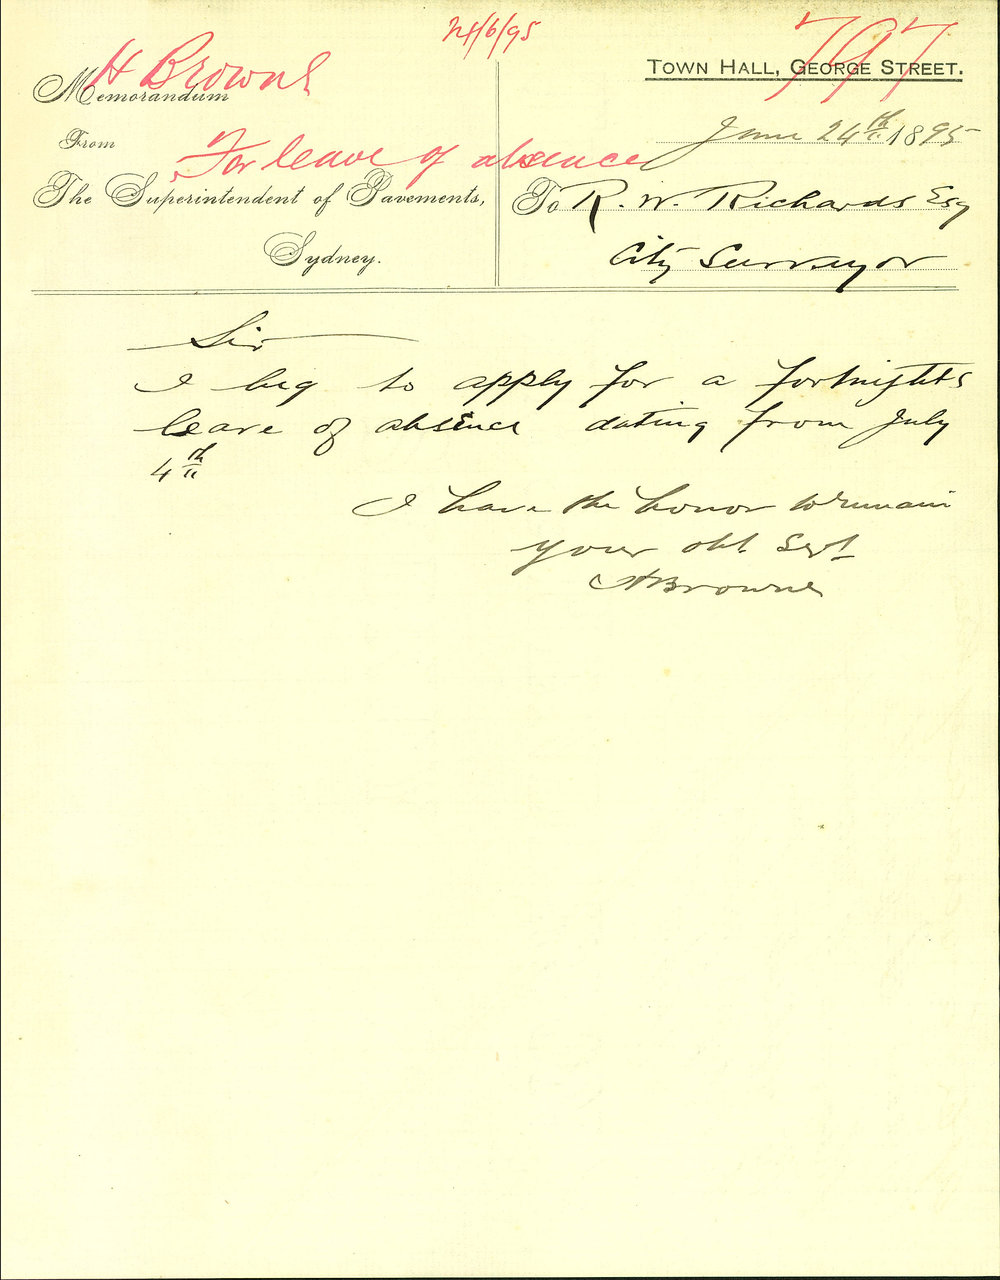 24/6/95
H Browne
797
TOWN HALL, GEORGE STREET.
Memorandum
June 24th 1895
From
For leave of absence
The Superintendent of Pavements,
To R. W. Richards Esq
Sydney.
City Surveyor
Sir
I beg to apply for a fortnights
leave of absence dating from July
4th
I have the honor to remain
your obt Servt
H Browne